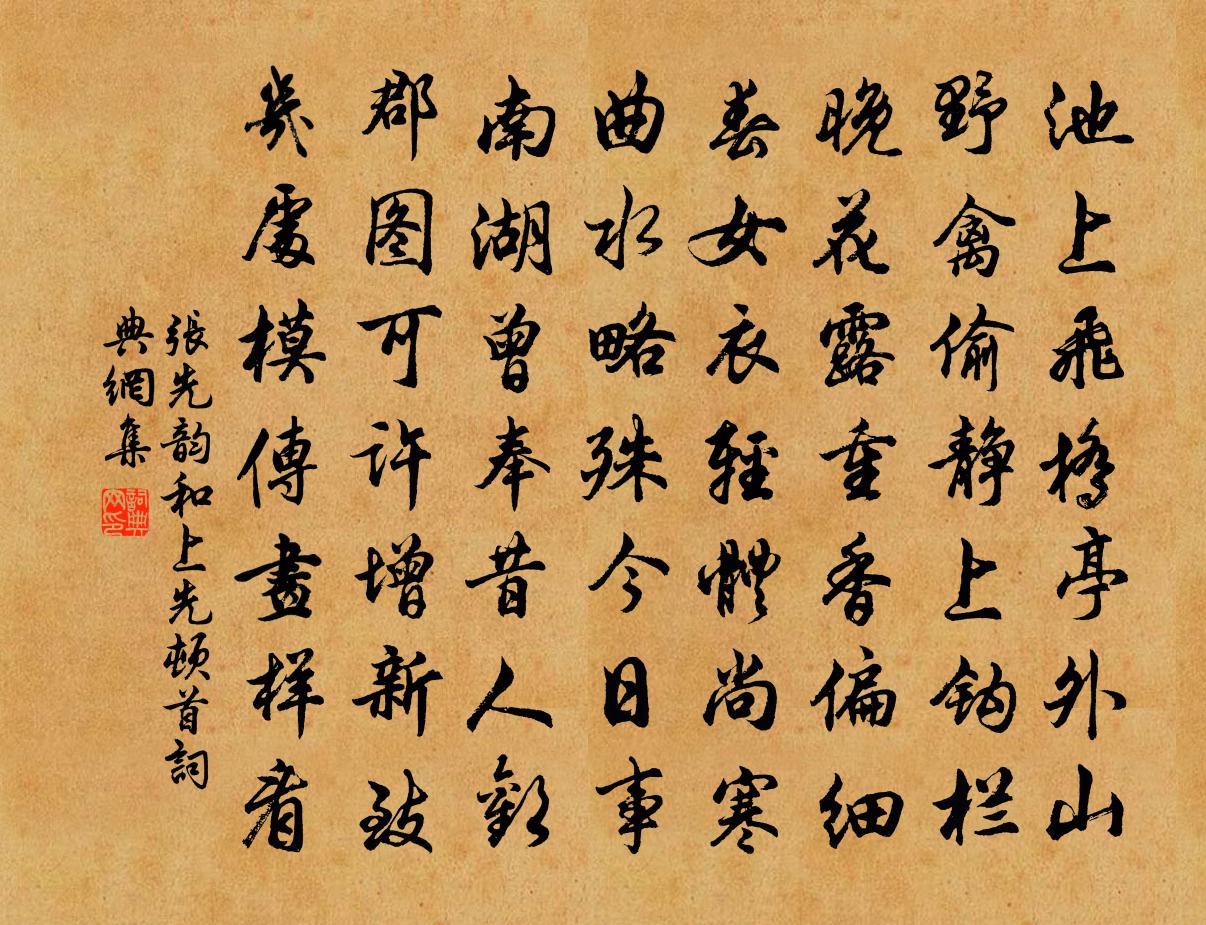 池上飛橋亭外山
野禽偷靜上鈎栏
晚花露重香偏细
春女衣輕體尚寒
曲水略殊今日事
南湖曾奉昔人歡
郡图可许增新致
幾處模傳畫样看
張先韵和上先頓首詞
典網集
詞典网印